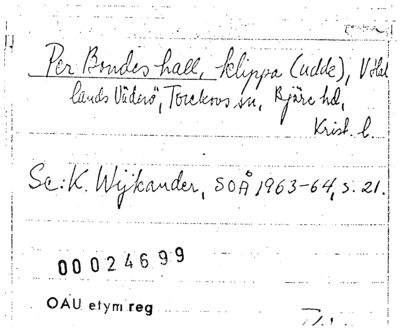 Per Bondes hall, klippa (udde), V Hal
lands Väderö, Torekovs sn, Bjäre hd,
Krist. l.
Se: K. Wijkander, SOÅ 1963-64, s. 21.
00024699
OAU etym reg